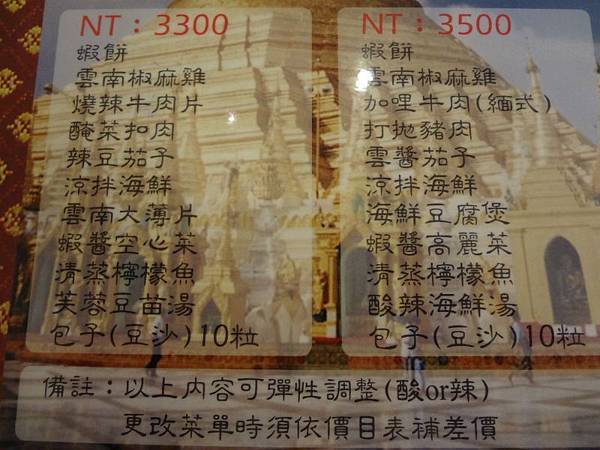 NT：3300
蝦餅
雲南椒麻雞
燒辣牛肉片
醃菜扣肉
辣豆茄子
涼拌海鮮
雲南大薄片
蝦醬空心菜
清蒸檸檬魚
芙蓉豆苗湯
包子(豆沙)10粒
NT：3500
蝦餅
雲南椒麻雞
加哩牛肉(緬式)
打拋豬肉
雲醬茄子
涼拌海鮮
海鮮豆腐煲
蝦醬高麗菜
清蒸檸檬魚
酸辣海鮮湯
包子(豆沙)10粒
備註：以上内容可彈性調整(酸or辣)
更改菜單時須依價目表補差價